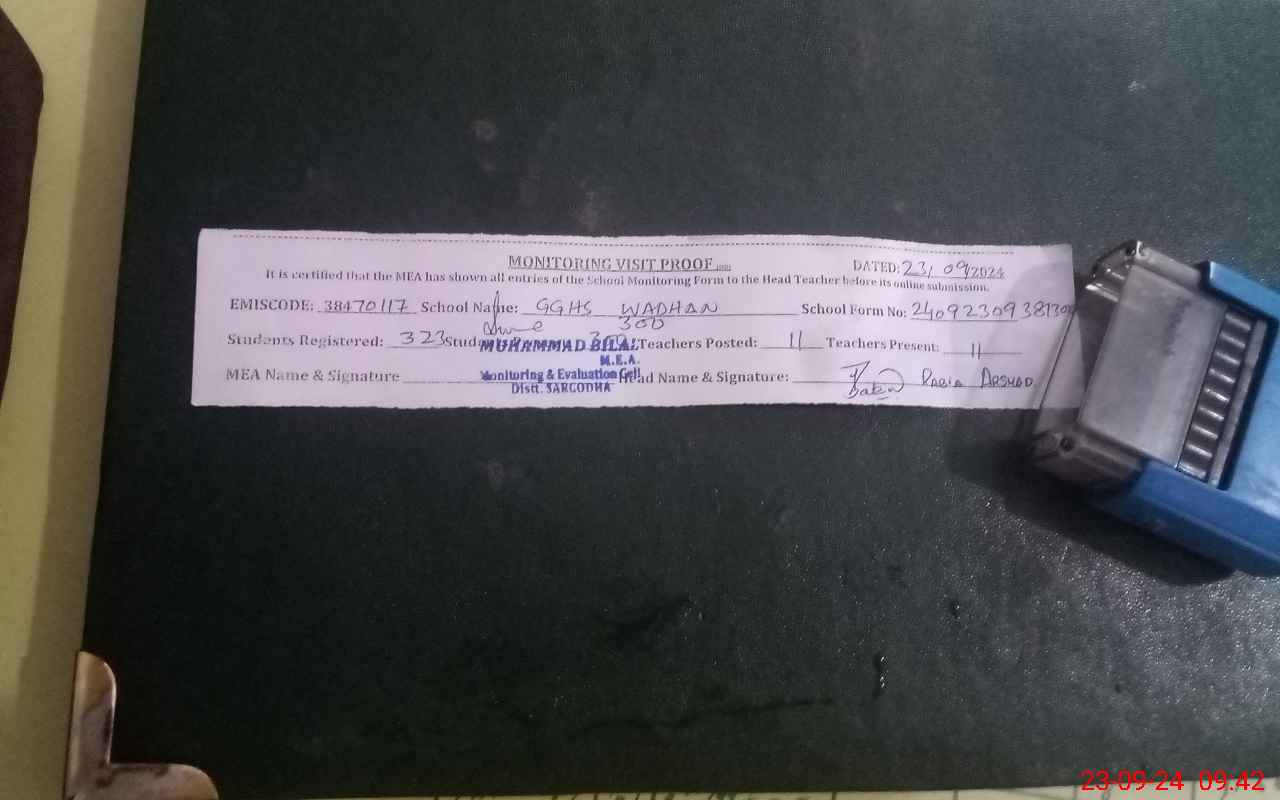 MONITORING VISIT PROOF
DATED: 23/09/2024
It is certified that the MEA has shown all entries of the School Monitoring Form to the Head Teacher before its online submission.
EMISCODE: 38470117 School Name: GGHS WADHAN School Form No: 240923093813
300
Students Registered: 323 Teachers Posted: 11 Teachers Present: 11
MUHAMMAD BILAL
M.E.A.
MEA Name & Signature Head Name & Signature: RABIA ARSHAD
Monitoring & Evaluation Cell
Distt. SARGODHA
23-09-24 09:42